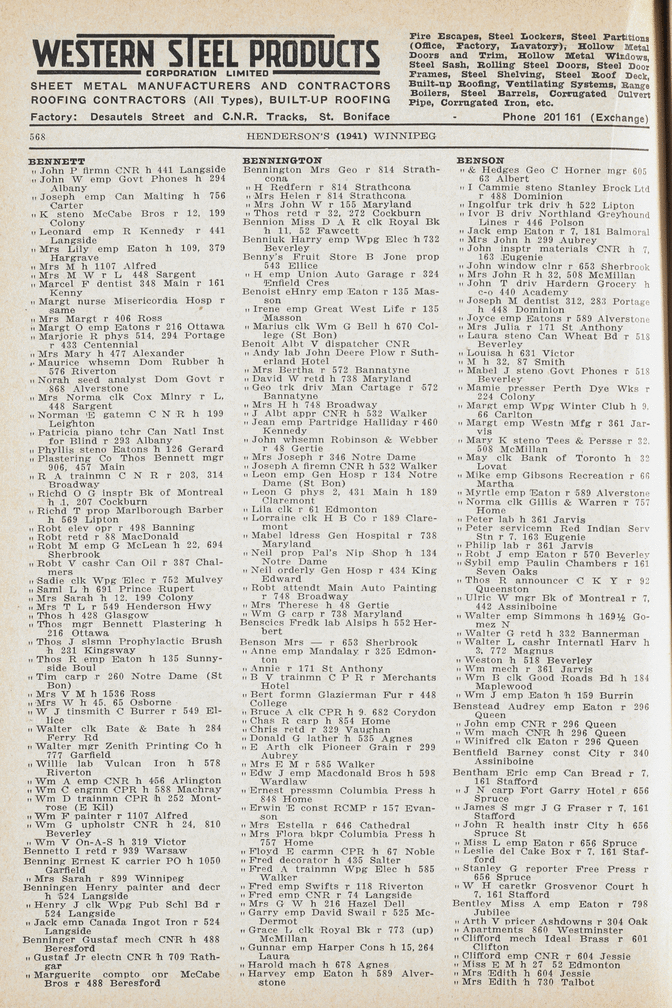 WESTERN STEEL PRODUCTS
CORPORATION LIMITED
SHEET METAL MANUFACTURERS AND CONTRACTORS
ROOFING CONTRACTORS (All Types), BUILT-UP ROOFING
Fire Escapes, Steel Lockers, Steel Partitions
(Office, Factory, Lavatory), Hollow Metal
Doors and Trim, Hollow Metal Windows,
Steel Sash, Rolling Steel Doors, Steel Door
Frames, Steel Shelving, Steel Roof Deck,
Built-up Roofing, Ventilating Systems, Range
Boilers, Steel Barrels, Corrugated Culvert
Pipe, Corrugated Iron, etc.
Factory: Desautels Street and C.N.R. Tracks, St. Boniface - Phone 201 161 (Exchange)
568 HENDERSON'S (1941) WINNIPEG
BENNETT
" John P firmn CNR h 441 Langside
" John W emp Govt Phones h 294
Albany
" Joseph emp Can Malting h 756
Carter
" K steno McCabe Bros r 12, 199
Colony
" Leonard emp R Kennedy r 441
Langside
" Mrs Lily emp Eaton h 109, 379
Hargrave
" Mrs M h 1107 Alfred
" Mrs M W r L, 448 Sargent
" Marcel F dentist 348 Main r 161
Kenny
" Margt nurse Misericordia Hosp r
same
" Mrs Margt r 406 Ross
" Margt O emp Eatons r 216 Ottawa
" Marjorie R phys 514, 294 Portage
r 433 Centennial
" Mrs Mary h 477 Alexander
" Maurice whsemn Dom Rubber h
576 Riverton
" Norah seed analyst Dom Govt r
868 Alverstone
" Mrs Norma clk Cox Mlnry r L,
448 Sargent
" Norman E gatemn C N R h 199
Leighton
" Patricia piano tchr Can Natl Inst
for Blind r 293 Albany
" Phyllis steno Eatons h 126 Gerard
" Plastering Co Thos Bennett mgr
906, 457 Main
" R A trainmn C N R r 203, 314
Broadway
" Richd O G insptr Bk of Montreal
h 1, 207 Cockburn
" Richd T prop Marlborough Barber
h 569 Lipton
" Robt elev opr r 498 Banning
" Robt retd r 88 MacDonald
" Robt M emp G McLean h 22, 694
Sherbrook
" Robt V cashr Can Oil r 387 Chal-
mers
" Sadie clk Wpg Elec r 752 Mulvey
" Saml L h 691 Prince Rupert
" Mrs Sarah h 12, 199 Colony
" Mrs T L r 549 Henderson Hwy
" Thos h 428 Glasgow
" Thos mgr Bennett Plastering h
216 Ottawa
" Thos J slsmn Prophylactic Brush
h 231 Kingsway
" Thos R emp Eaton h 135 Sunny-
side Boul
" Tim carp r 260 Notre Dame (St
Bon)
" Mrs V M h 1536 Ross
" Mrs W h 45, 65 Osborne
" W J tinsmith C Burrer r 549 El-
lice
" Walter clk Bate & Bate h 284
Ferry Rd
" Walter mgr Zenith Printing Co h
777 Garfield
" Willie lab Vulcan Iron h 578
Riverton
" Wm A emp CNR h 456 Arlington
" Wm C engmn CPR h 588 Machray
" Wm D trainmn CPR h 252 Mont-
rose (E Kil)
" Wm F painter r 1107 Alfred
" Wm G upholstr CNR h 24, 810
Beverley
" Wm V On-A-S h 319 Victor
Bennetto I retd r 939 Warsaw
Benning Ernest K carrier PO h 1050
Garfield
" Mrs Sarah r 899 Winnipeg
Benningen Henry painter and decr
h 524 Langside
" Henry J clk Wpg Pub Schl Bd r
524 Langside
" Jack emp Canada Ingot Iron r 524
Langside
Benninger Gustaf mech CNR h 488
Beresford
" Gustaf Jr electn CNR h 709 Rath-
gar
" Marguerite compto opr McCabe
Bros r 488 Beresford
BENNINGTON
Bennington Mrs Geo r 814 Strath-
cona
" H Redfern r 814 Strathcona
" Mrs Helen r 814 Strathcona
" Mrs John W r 155 Maryland
" Thos retd r 32, 272 Cockburn
Bennion Miss D A R clk Royal Bk
h 11, 52 Fawcett
Benniuk Harry emp Wpg Elec h 732
Beverley
Benny's Fruit Store B Jone prop
543 Ellice
" H emp Union Auto Garage r 324
Enfield Cres
Benoist eHnry emp Eaton r 135 Mas-
son
" Irene emp Great West Life r 135
Masson
" Marius clk Wm G Bell h 670 Col-
lege (St Bon)
Benoit Albt V dispatcher CNR
" Andy lab John Deere Plow r Suth-
erland Hotel
" Mrs Bertha r 572 Bannatyne
" David W retd h 738 Maryland
" Geo trk driv Man Cartage r 572
Bannatyne
" Mrs H h 748 Broadway
" J Albt appr CNR h 532 Walker
" Jean emp Partridge Halliday r 460
Kennedy
" John whsemn Robinson & Webber
r 48 Gertie
" Mrs Joseph r 346 Notre Dame
" Joseph A firemn CNR h 532 Walker
" Leon emp Gen Hosp r 134 Notre
Dame (St Bon)
" Leon G phys 2, 431 Main h 189
Claremont
" Lila clk r 61 Edmonton
" Lorraine clk H B Co r 189 Clare-
mont
" Mabel ldress Gen Hospital r 738
Maryland
" Neil prop Pal's Nip Shop h 134
Notre Dame
" Neil orderly Gen Hosp r 434 King
Edward
" Robt attendt Main Auto Painting
r 748 Broadway
" Mrs Therese h 48 Gertie
" Wm G carp r 738 Maryland
Benscics Fredk lab Alsips h 552 Her-
bert
Benson Mrs — r 653 Sherbrook
" Anne emp Mandalay r 325 Edmon-
ton
" Annie r 171 St Anthony
" B V trainmn C P R r Merchants
Hotel
" Bert formn Glazierman Fur r 448
College
" Bruce A clk CPR h 9, 682 Corydon
" Chas R carp h 854 Home
" Chris retd r 329 Vaughan
" Donald G lather h 535 Agnes
" E Arth clk Pioneer Grain r 299
Aubrey
" Mrs E M r 585 Walker
" Edw J emp Macdonald Bros h 598
Wardlaw
" Ernest pressmn Columbia Press h
848 Home
" Erwin E const RCMP r 157 Evan-
son
" Mrs Estella r 646 Cathedral
" Mrs Flora bkpr Columbia Press h
757 Home
" Floyd E carmn CPR h 67 Noble
" Fred decorator h 435 Salter
" Fred A trainmn Wpg Elec h 585
Walker
" Fred emp Swifts r 118 Riverton
" Fred emp CNR r 74 Langside
" Mrs G W h 216 Hazel Dell
" Garry emp David Swail r 525 Mc-
Dermot
" Grace L clk Royal Bk r 773 (up)
McMillan
" Gunnar emp Harper Cons h 15, 264
Laura
" Harold mach h 678 Agnes
" Harvey emp Eaton h 589 Alver-
stone
BENSON
" & Hedges Geo C Horner mgr 605
63 Albert
" I Cammie steno Stanley Brock Ltd
r 488 Dominion
" Ingolfur trk driv h 522 Lipton
" Ivor B driv Northland Greyhound
Lines r 446 Polson
" Jack emp Eaton r 7, 181 Balmoral
" Mrs John h 299 Aubrey
" John insptr materials CNR h 7,
163 Eugenie
" John window clnr r 653 Sherbrook
" Mrs John R h 32, 508 McMillan
" John T driv Hardern Grocery h
c-o 440 Academy
" Joseph M dentist 312, 283 Portage
h 448 Dominion
" Joyce emp Eatons r 589 Alverstone
" Mrs Julia r 171 St Anthony
" Laura steno Can Wheat Bd r 518
Beverley
" Louisa h 631 Victor
" M h 32, 87 Smith
" Mabel J steno Govt Phones r 518
Beverley
" Mamie presser Perth Dye Wks r
224 Colony
" Margt emp Wpg Winter Club h 9,
66 Carlton
" Margt emp Westn Mfg r 361 Jar-
vis
" Mary K steno Tees & Persse r 32,
508 McMillan
" May clk Bank of Toronto h 32
Lovat
" Mike emp Gibsons Recreation r 66
Martha
" Myrtle emp Eaton r 589 Alverstone
" Norma clk Gillis & Warren r 757
Home
" Peter lab h 361 Jarvis
" Peter servicemn Red Indian Serv
Stn r 7, 163 Eugenie
" Philip lab r 361 Jarvis
" Robt J emp Eaton r 570 Beverley
" Sybil emp Paulin Chambers r 161
Seven Oaks
" Thos R announcer C K Y r 92
Queenston
" Ulric W mgr Bk of Montreal r 7,
442 Assiniboine
" Walter emp Simmons h 169½ Go-
mez N
" Walter G retd h 332 Bannerman
" Walter L cashr Internatl Harv h
3, 772 Magnus
" Weston h 518 Beverley
" Wm mech r 361 Jarvis
" Wm B clk Good Roads Bd h 184
Maplewood
" Wm J emp Eaton h 159 Burrin
Benstead Audrey emp Eaton r 296
Queen
" John emp CNR r 296 Queen
" Wm mach CNR h 296 Queen
" Winifred clk Eaton r 296 Queen
Bentfield Barney const City r 340
Assiniboine
Bentham Eric emp Can Bread r 7,
161 Stafford
" J N carp Fort Garry Hotel r 656
Spruce
" James S mgr J G Fraser r 7, 161
Stafford
" John R health instr City h 656
Spruce St
" Miss L emp Eaton r 656 Spruce
" Leslie del Cake Box r 7, 161 Staf-
ford
" Stanley G reporter Free Press r
656 Spruce
" W H caretkr Grosvenor Court h
7, 161 Stafford
Bentley Miss A emp Eaton r 798
Jubilee
" Arth V pricer Ashdowns r 304 Oak
" Apartments 860 Westminster
" Clifford mech Ideal Brass r 601
Clifton
" Clifford emp CNR r 604 Jessie
" Miss E M h 27 52 Edmonton
" Mrs Edith r 604 Jessie
" Mrs Edith h 730 Talbot